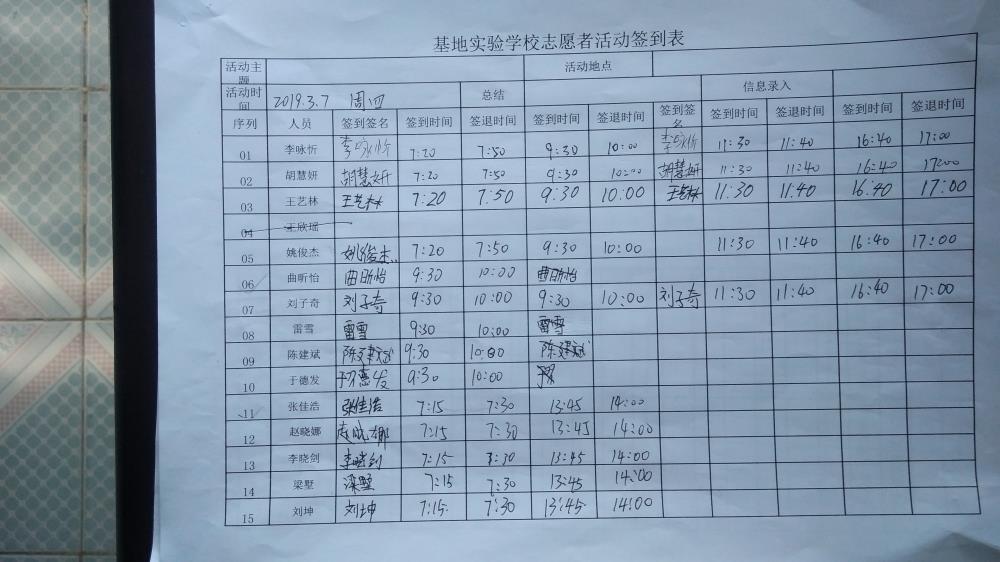 基地实验学校志愿者活动签到表
活动主题 活动地点
活动时间 2019.3.7 周四 总结 信息录入
序列 人员 签到签名 签到时间 签退时间 签到时间 签退时间 签到签名 签到时间 签退时间 签到时间 签退时间
01 李咏忻 李咏忻 7:20 7:50 9:30 10:00 李咏忻 11:30 11:40 16:40 17:00
02 胡慧妍 胡慧妍 7:20 7:50 9:30 10:00 胡慧妍 11:30 11:40 16:40 17:00
03 王艺林 王艺林 7:20 7:50 9:30 10:00 王艺林 11:30 11:40 16:40 17:00
04 王欣瑶
05 姚俊杰 姚俊杰 7:20 7:50 9:30 10:00 11:30 11:40 16:40 17:00
06 曲昕怡 曲昕怡 9:30 10:00 曲昕怡
07 刘子奇 刘子奇 9:30 10:00 9:30 10:00 刘子奇 11:30 11:40 16:40 17:00
08 雷雪 雷雪 9:30 10:00 雷雪
09 陈建斌 陈建斌 9:30 10:00 陈建斌
10 于德发 于德发 9:30 10:00
11 张佳浩 张佳浩 7:15 7:30 13:45 14:00
12 赵晓娜 赵晓娜 7:15 7:30 13:45 14:00
13 李晓剑 李晓剑 7:15 7:30 13:45 14:00
14 梁墅 梁墅 7:15 7:30 13:45 14:00
15 刘坤 刘坤 7:15 7:30 13:45 14:00